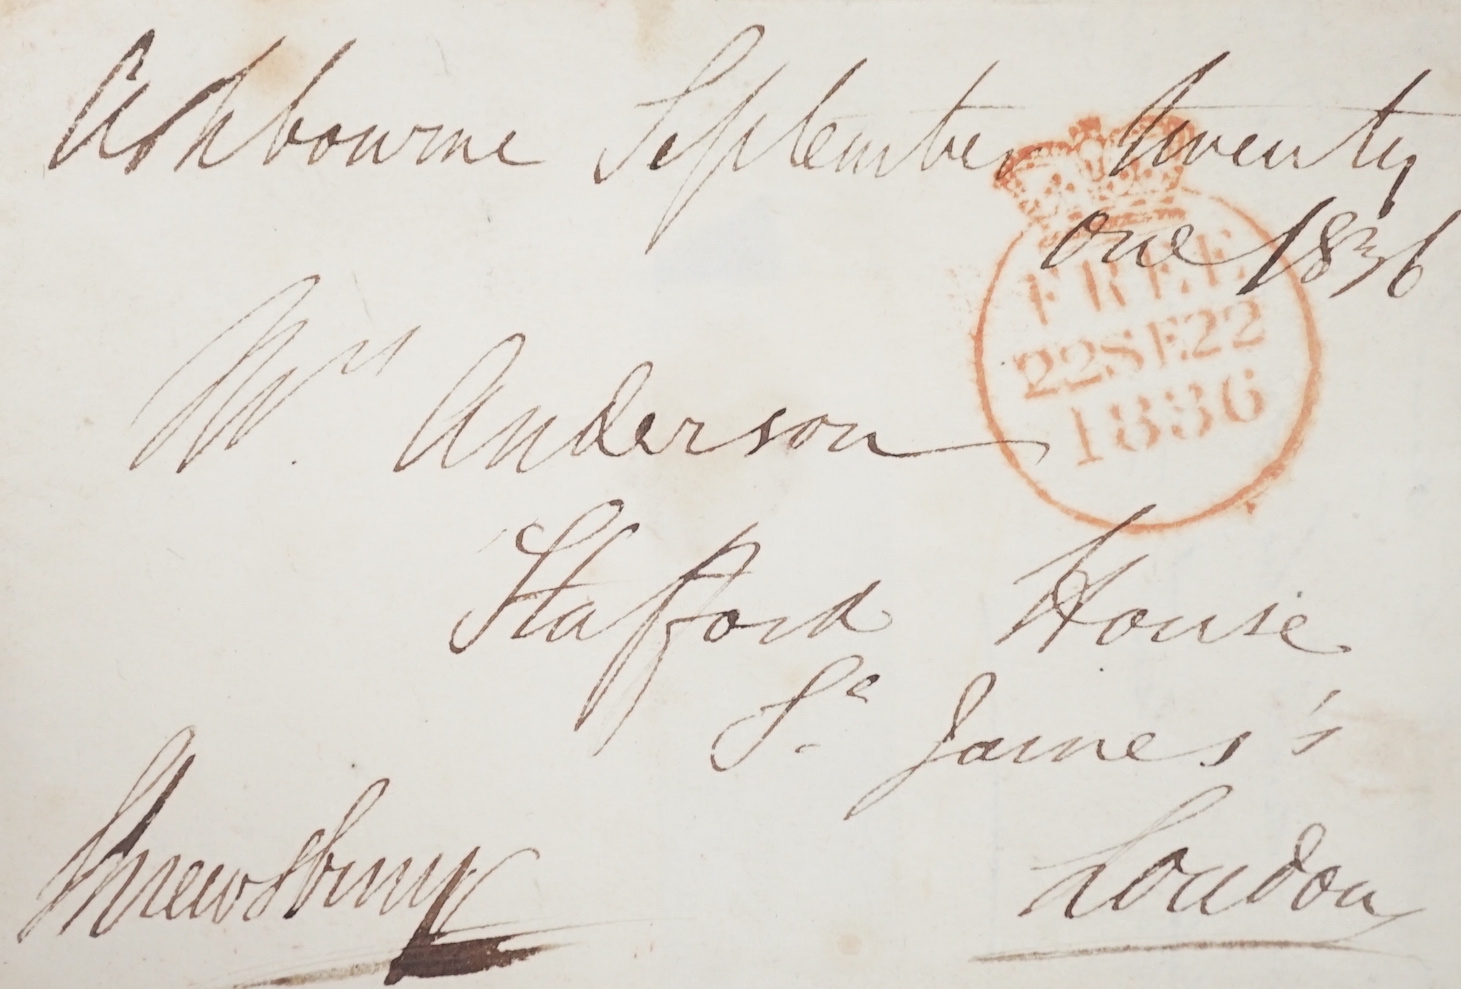 Ashbourne September Twenty
one 1836
FREE
22SE22
1836
Mrs Anderson
Stafford House
St. James's
London
Shrewsbury